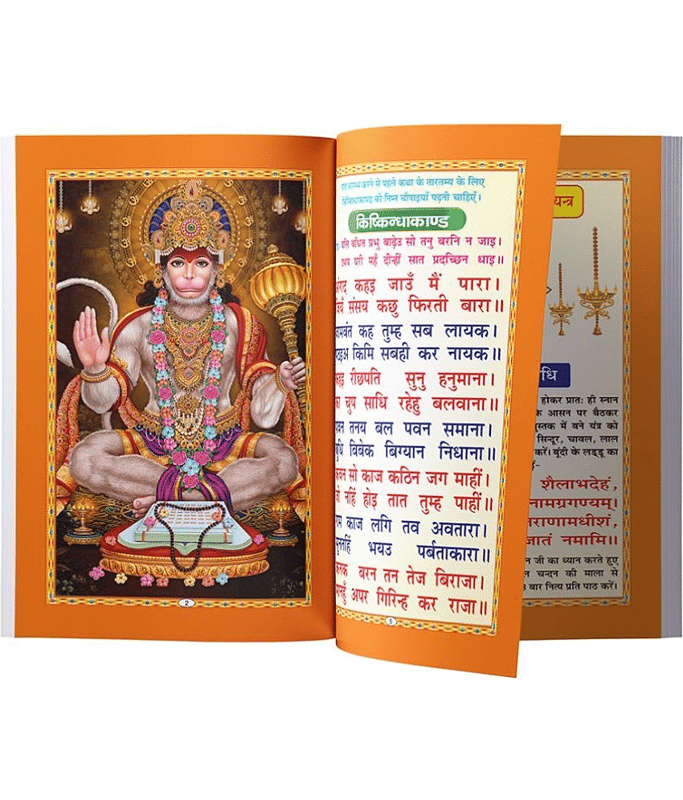 2
करने से पहले कथा के तारतम्य के लिए
को निम्न चौपाइयाँ पढ़नी चाहिएँ।
किष्किन्धाकाण्ड
प्रभु बाढ़ेउ सो तनु बरनि न जाइ।
घरी महँ दीन्हीं सात प्रदच्छिन धाइ॥
कहइ जाउँ मैं पारा।
संसय कछु फिरती बारा॥
कह तुम्ह सब लायक।
किमि सबही कर नायक॥
रीछपति सुनु हनुमाना।
चुप साधि रहेहु बलवाना॥
तनय बल पवन समाना।
बिबेक बिग्यान निधाना॥
सो काज कठिन जग माहीं।
नहिं होइ तात तुम्ह पाहीं॥
काज लगि तव अवतारा।
भयउ पर्बताकारा॥
बरन तन तेज बिराजा।
अपर गिरिन्ह कर राजा॥
5
होकर प्रातः ही स्नान
के आसन पर बैठकर
में बने यंत्र को
सिन्दूर, चावल, लाल
करें। बूंदी के लड्डू का
शैलाभदेहं,
जी का ध्यान करते हुए
चन्दन की माला से
बार नित्य प्रति पाठ करें।